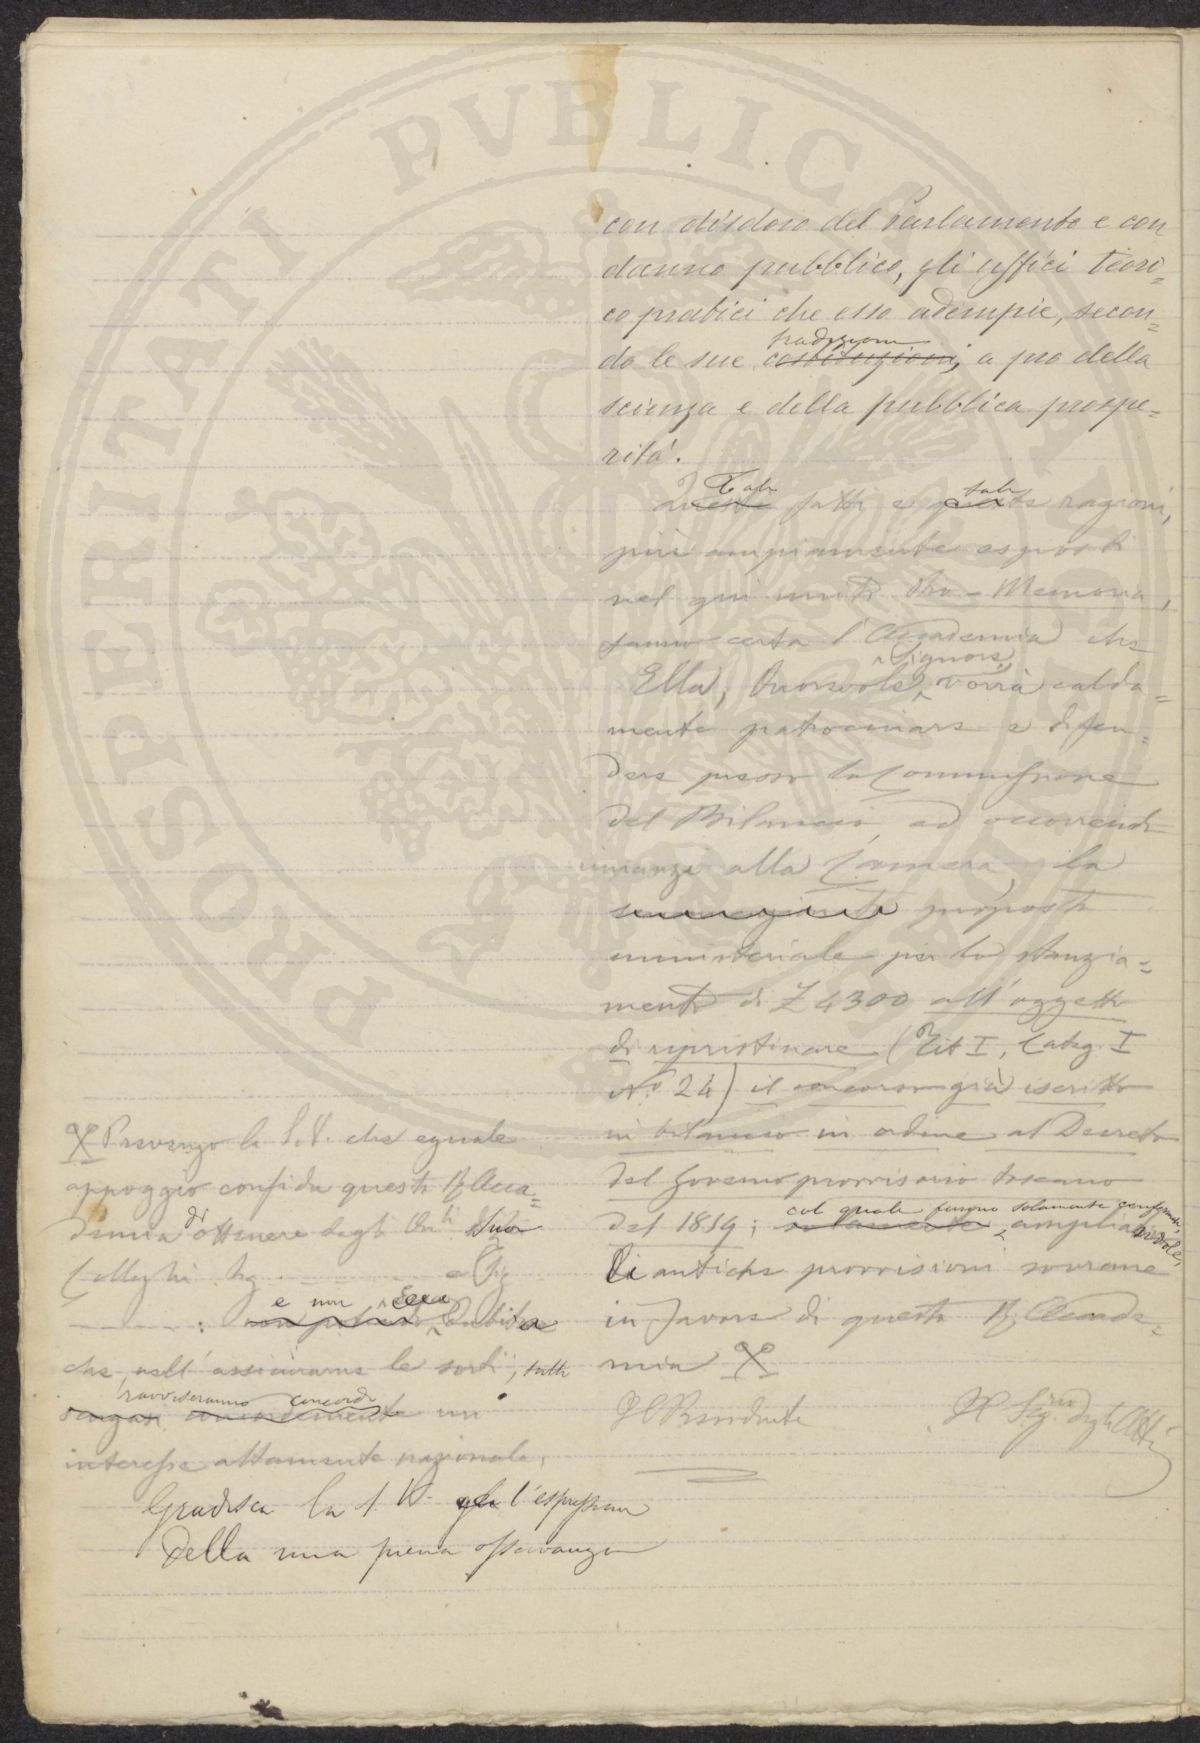 PROSPERITATI PVBLICAE
con disdoro del Parlamento e con
danno pubblico, gli uffici teori=
co pratici che esso adempie, secon=
do le sue costituzioni, tradizioni a pro della
scienza e della pubblica prospe=
rità.
Questi Tali fatti e queste tali ragioni,
più ampiamente esposti
nel qui unito Pro-Memoria,
fanno certa l'Accademia che
Ella, Onorevole Signore, vorrà calda=
mente patrocinare e difen=
dere presso la Commissione
del Bilancio, ed occorrendo
innanzi alla Camera, la
proposta
ministeriale per lo stanzia=
mento di £ 4300 all'oggetto
di ripristinare (Tit I, Categ. I
No. 24) il concorso già iscritto
in bilancio in ordine al Decreto
del Governo provvisorio toscano
del 1859; col quale furono solamente confermate, ampliandole,
le antiche provvisioni sovrane
in favore di questa R. Accade=
mia
Il Presidente
Il Segrio degli Atti
Prevengo la S.V. che eguale
appoggio confida questa R. Acca=
demia di ottenere dagli Onli Suoi
Colleghi Sig. e Sig
: e non dubita
che, nell'assicurarne le sorti, tutti
ravviseranno concordi un
interesse altamente nazionale.
Gradisca la S. V. l'espressione
della mia piena osservanza